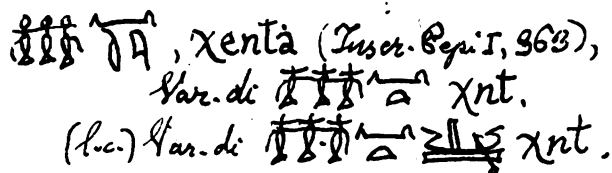 , χentà (Inscr. Pepi I, 963),
Var. di χnt.
(l.c.) Var. di χnt.